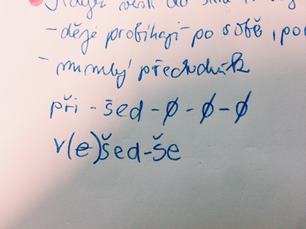 do
- děje probíhají po sobě, i po
- minulý přechodník
při - šed - ø - ø - ø
v(e)šed-še